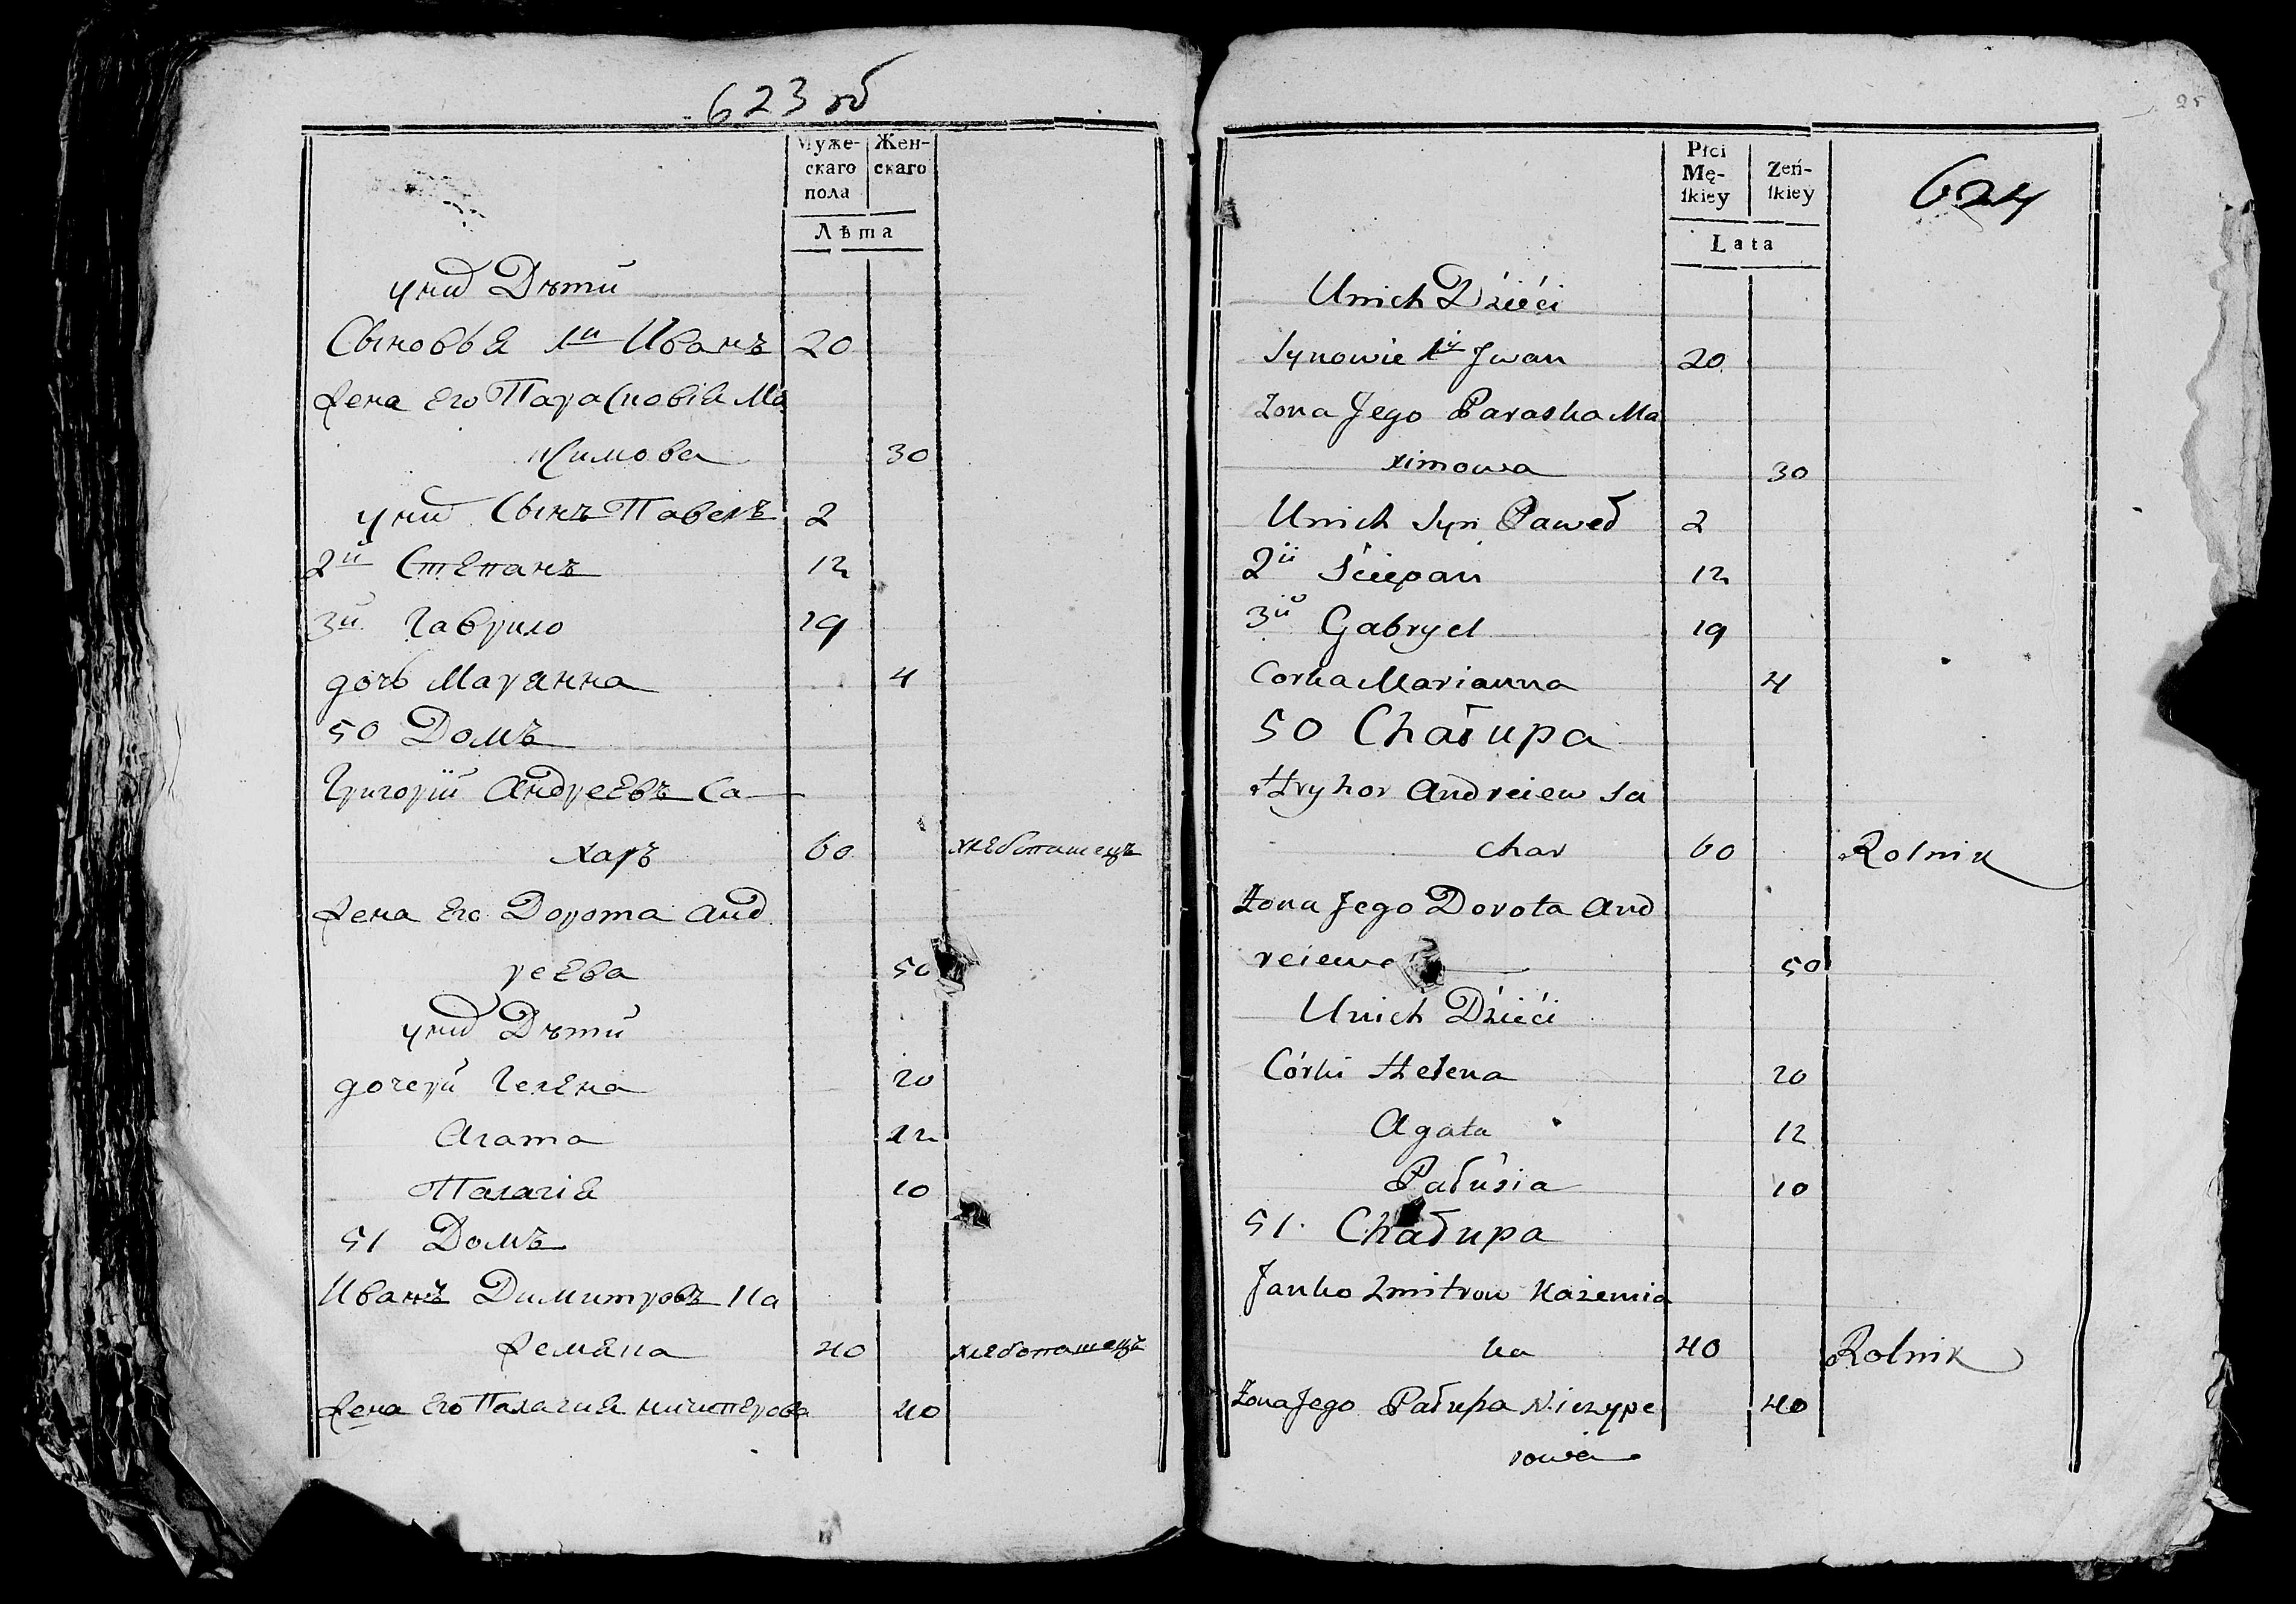 623 об
Муже-
скаго
пола
Жен-
скаго
Лѣта
у них Дѣти
Сыновья 1й Иванъ 20
Жена Его Парасковія Ма
кимова 30
у них Сынъ Павелъ 2
2й Степанъ 12
3й Гаврило 19
дочь Марянна 4
50 Домъ
Григорій Андреевъ Са
харъ 60 хлебопашецъ
Жена Его Дорота Анд
реева 50
у них Дѣти
дочери Гелена 20
Агата 12
Палагія 10
51 Домъ
Иванъ Димитровъ Ка
жемяка 40 хлебопашецъ
Жена Его Палагия Ничиперова 40
25
Płci
Mę-
ſkiey
Zeń-
ſkiey
624
Lata
Unich Dzieći
Synowie 1y Jwan 20
Zona Jego Paraska Ma
ximowa 30
Unich Syn Paweł 2
2ii Sciepan 12
3ii Gabryel 19
Corka Marianna 4
50 Chałupa
Hryhor Andreiew Sa
char 60 Rolnik
Żona Jego Dorota And
reiewa 50
Unich Dzieći
Córki Helena 20
Agata 12
Pałuśia 10
51. Chałupa
Janko Zmitrow Każemia
ka 40 Rolnik
Żona Jego Pałuha Niczype
rowa 40